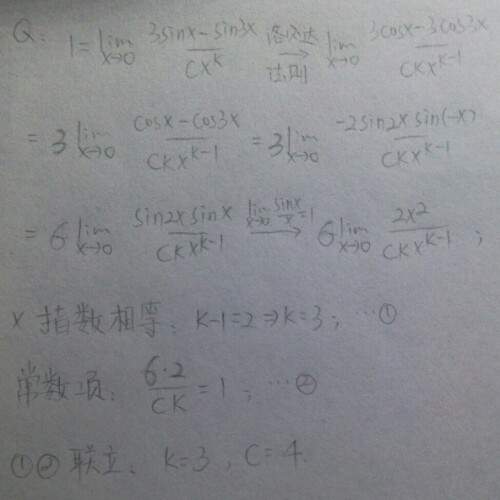 Q: 1 = lim x→0 (3sinx - sin3x)/(cx^k) 洛必达法则 → lim x→0 (3cosx - 3cos3x)/(ckx^(k-1))
= 3 lim x→0 (cosx - cos3x)/(ckx^(k-1)) = 3 lim x→0 (-2sin2x sin(-x))/(ckx^(k-1))
= 6 lim x→0 (sin2x sinx)/(ckx^(k-1)) lim x→0 sinx/x = 1 → 6 lim x→0 2x²/(ckx^(k-1)) ;
x 指数相等: k-1=2 ⇒ k=3 ; …①
常数项: 6·2/(ck) = 1 ; …②
①② 联立: k=3 , c=4.